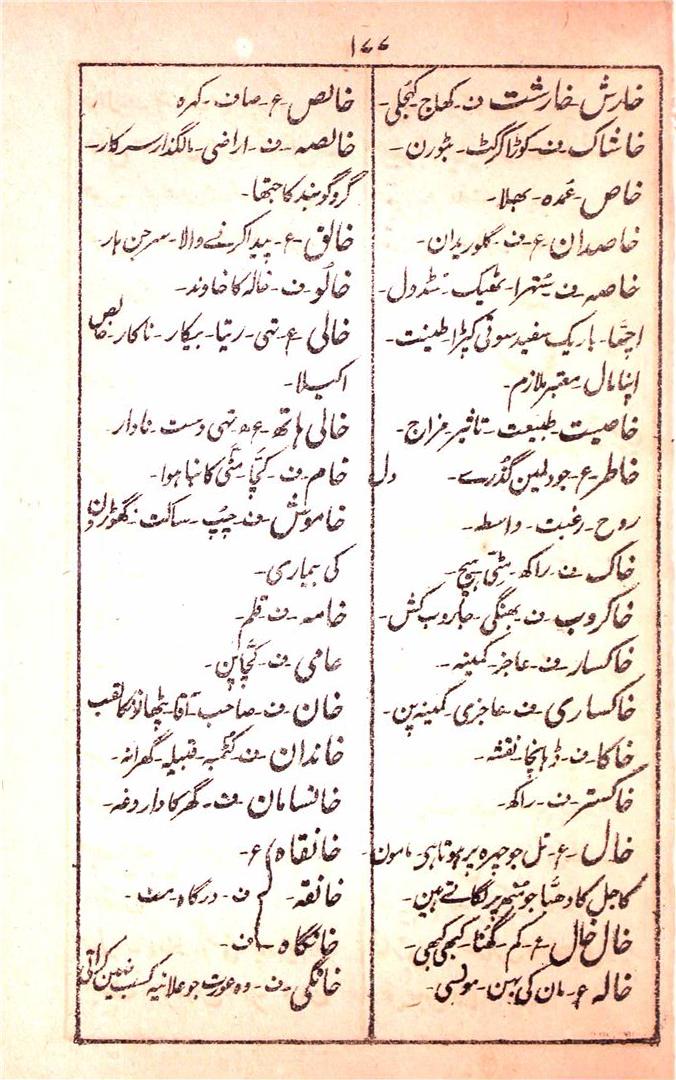 ۱۷۷
خارش۔ خارشت ف۔ کھاج۔ کھجلی۔
خاشاک۔ ف۔ کوڑا کرکٹ۔ بٹورن۔
خاص۔ عمدہ۔ بھلا۔
خاصدان۔ ع۔ ف۔ گلوریدان۔
خاصہ۔ ف۔ ستھرا۔ ٹھیک۔ سڈول۔
اچھا۔ باریک سفید سوتی کپڑا۔ طینت۔
اپنا مال۔ معتبر ملازم۔
خاصیت۔ طبیعت۔ تاثیر۔ مزاج۔
خاطر۔ ع۔ جو دلمین گذرے۔ دل
روح۔ رغبت۔ واسطہ۔
خاک۔ ف۔ راکھ۔ مٹی۔ ہیچ۔
خاکروب۔ ف۔ بھنگی۔ جاروب کش۔
خاکسار۔ ف۔ عاجز۔ کمینہ۔
خاکساری۔ ف۔ عاجزی۔ کمینہ پن۔
خاکا۔ ف۔ ڈہانچا۔ نقشہ۔
خاکستر۔ ف۔ راکھ۔
خال۔ ع۔ تل جو چہرہ پر ہوتا ہی۔ مامون۔
کاجل کا دھبا جو منھ پر لگاتے ہین۔
خال خال۔ ع۔ کم۔ گھٹنا۔ کبھی کبھی۔
خالہ۔ ع۔ مان کی بہن۔ موسی۔
خالص۔ ع۔ صاف۔ کھرہ
خالصہ۔ ف۔ اراضی۔ مالگذار سرکار۔
گرو گوبند کا جتھا۔
خالق۔ ع۔ پیدا کرنے والا۔ سرجن ہار۔
خالو۔ ف۔ خالہ کا خاوند۔
خالی۔ ع۔ تہی۔ ریتا۔ بیکار۔ ناکار۔ خالص
اکیلا۔
خالی ہاتھ۔ ع۔ ھ۔ تہی دست۔ نادار۔
خام۔ ف۔ کچا۔ مٹی کا بنا ہوا۔
خاموش۔ ف۔ چپ۔ ساکت۔ گھوڑون
کی بیماری۔
خامہ۔ ف۔ قلم۔
خامی۔ ف۔ کچا پن۔
خان۔ ف۔ صاحب۔ آقا۔ پٹھانونکا لقب
خاندان۔ ف۔ کٹمبہ۔ قبیلہ۔ گھرانہ۔
خانسامان۔ ف۔ گھر کا داروغہ۔
خانقاہ۔ ع۔
خانقہ۔ ف۔ درگاہ۔ مٹ۔
خانگاہ۔ ف۔
خانگی۔ ف۔ وہ عورت جو علانیہ کسب نہین کراتی